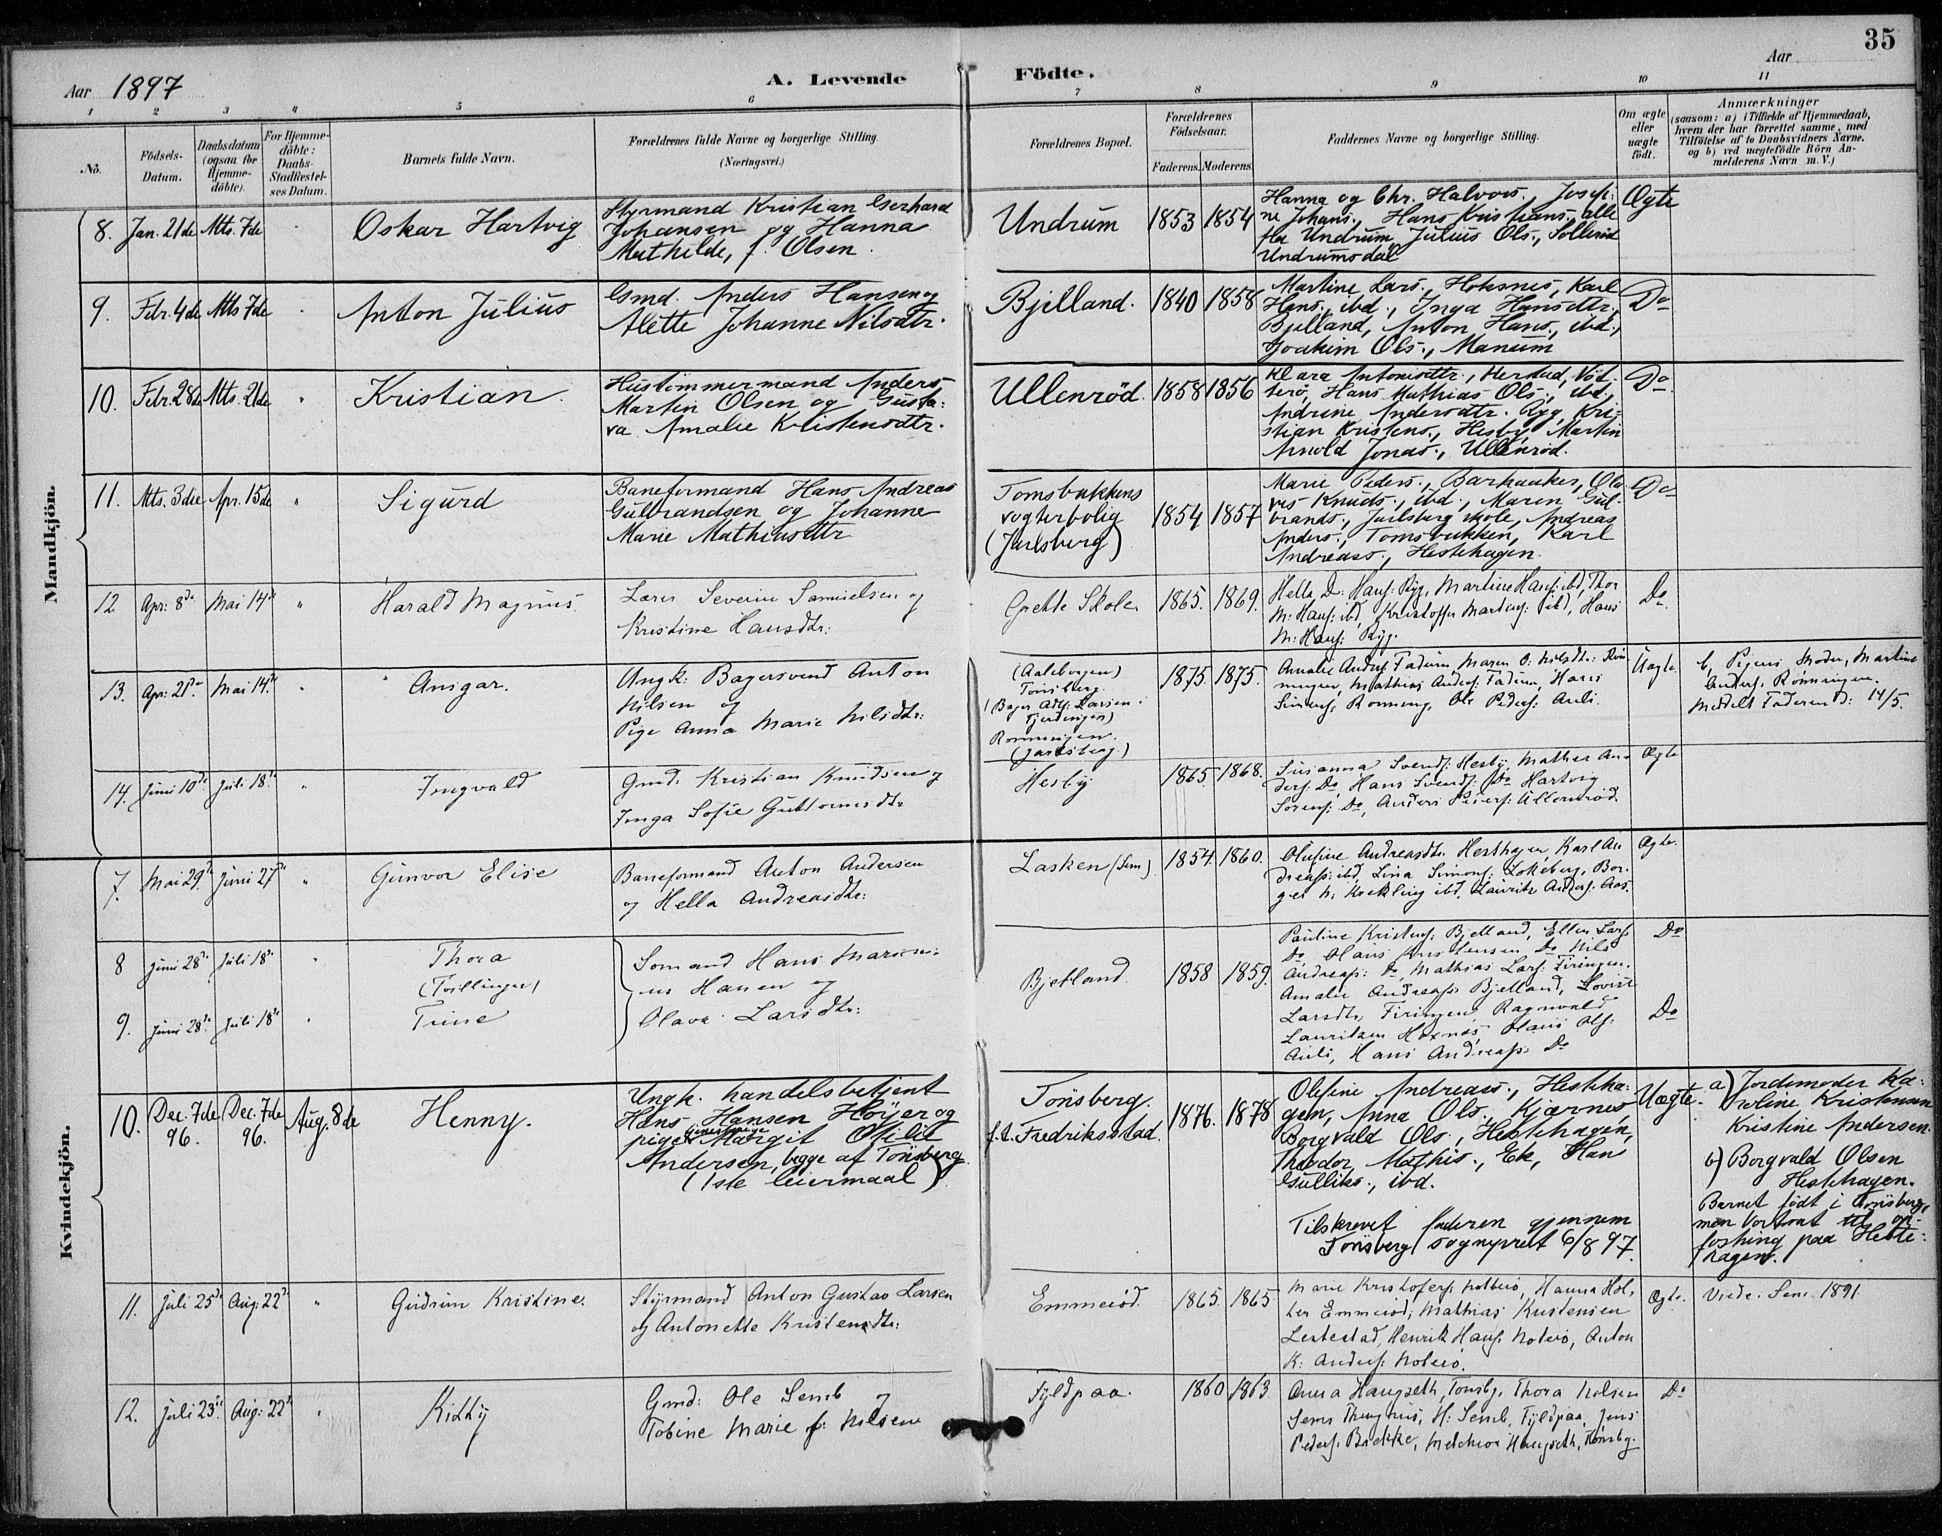 35
Aar 1897
A. Levende Födte.
Aar
1 2 3 4 5 6 7 8 9 10 11
No.
Födsels-Datum.
Daabsdatum (ogsaa for Hjemme-döbte).
For Hjemme-döbte: Daabs-Stadfæstelses Datum.
Barnets fulde Navn.
Forældrenes fulde Navne og borgerlige Stilling. (Næringsvei.)
Forældrenes Bopæl.
Forældrenes Födselsaar.
Faderens. Moderens.
Faddernes Navne og borgerlige Stilling.
Om ægte eller uægte født.
Anmærkninger
(saasom: a) i Tilfælde af Hjemmedaab,
hvem der har forrettet samme, med
Tilföielse af to Daabsvidners Navne,
og b) ved uægtefödte Börn An-
melderens Navn m. V.)
Mandkjön.
8. Jan. 21de Mts. 7de Oskar Hartvig
Styrmand Kristian Gerhard
Johansen og Hanna
Mathilde, f. Olsen.
Undrum 1853 1854
Hanna og Chr. Halvors. Josefi-
ne Johans., Hans Kristians., alle
fra Undrum, Julius Ols., Solleröd
Undrumsdal
Ægte
9. Febr. 4de Mts 7de Anton Julius
Gmd. Anders Hansen og
Alette Johanne Nilsdtr.
Bjelland. 1840 1858
Martine Lars., Holmsnes, Karl
Hans., ibd., Inga Hansdtr.,
Bjelland, Anton Hans., ibd.,
Joakim Ols., Manum
Do
10. Febr. 28de Mts. 21de Kristian.
Hustömmermand Anders
Martin Olsen og Gusta-
va Amalie Kristensdtr.
Ullenröd. 1858 1856
Klara Antonsdtr., Herstad, Nöt-
terö, Hans Mathias Ols., ibd.,
Andrine Andersdtr. Ryg, Kri-
stian Kristens., Hesby, Martin
Arnold Jonas., Ullenröd.
Do
11. Mts. 3die Apr. 15de " Sigurd
Baneformand Hans Andreas
Gulbrandsen og Johanne
Marie Mathiasdtr
Tomsbakkens
vogterbolig
(Jarlsberg)
1854 1857
Marie Peders., Barkaaker, Ola-
ves Knuds., ibd., Maren Gul-
brands., Jarlsberg skole, Andreas
Anders., Tomsbakken, Karl
Andreass., Hestehagen.
Do
12 Apr: 8de Mai 14de " Harald Magnus.
Lærer Severin Samuelsen og
Kristine Hansdtr:
Grette Skole. 1865. 1869.
Hella D: Hans: Ryg, Martine Hans: ibd, Thor
M: Hans: ibd, Kristoffer Martins: ibd, Hans
M: Hans: Ryg.
Do
13. Apr: 21de Mai 14de " Ansgar.
Ungk: Bagersvend Anton
Nilsen og
Pige Anna Marie Nilsdtr:
(Aaleborgen)
Tönsberg.
(Bager Adf: Larsen
Fjerdingen)
Rønningen.
(Jarlsberg.)
1875. 1875.
Amalie Anders: Fadum, Maren O: Nilsdtr: Røn-
ningen, Mathias Anders: Fadum, Hans
Simens: Rønning, Ole Peders: Auli.
Uægte.
b, Pigens Moder, Martine
Anders. Rønningen.
Meddelt Faderen d: 14/5.
14. Juni 10de Juli 18de " Ingvald
Gmd: Kristian Knudsen og
Inga Sofie Guttormsdtr
Hesby 1865. 1868.
Susanna Svends: Hesby, Mathea An-
ders: Do, Hans Svends: Do Hartvig
Sörens: Do, Anders Peders: Ullenröd.
Ægte
Kvindekjön.
7. Mai 29de Juni 27de " Gunvor Elise
Baneformand Anton Andersen
og Hella Andreasdtr:
Lasken (Sem) 1854. 1860.
Olufine Andreasdtr. Hesthagen, Karl An-
dreass: ibd, Lina Simons: Lökeberg, Bor-
ger N. Krekling ibd, Lauritz Anders: Aas.
Ægte.
8 Juni 28de Juli 18de " Thora
(Tvillinger)
9. Juni 28de Juli 18de " Trine
Sömand Hans Marcini-
us Hansen og
Olava Larsdtr:
Bjelland. 1858 1859.
Pauline Kristens: Bjelland, Ellen Lars:
Do, Hans Kristiansen Do, Nils
Andreass: Do, Mathias Lars: Firingen.
Amalie Andreass: Bjelland, Lovise
Larsdtr, Firingen, Ragnvald
Lauritzen Hoxnæs, Hans Ols:
Auli, Hans Andreass: Do
Do
Do
10. Dec. 7de 96. Dec. 7de 96. Aug. 8de Henny.
Ungk. handelsbetjent
Hans Hansen Höyer og
pige Margit Otilie
Andersen, begge af Tönsberg
(1ste leiermaal)
Tönsberg.
f. t. Fredriksstad.
1876. 1878
Olefine Andreass., Hestha-
gen, Anna Ols. Kjærnes,
Borgvald Ols., Hestehagen,
Theodor Mathis., Ek, Han
Gulliks., ibd.
Tilskrevet faderen gjennem
Tönsberg sogneprest 6/8 97.
Uægte.
a) Jordemoder Ka-
roline Kristensen
Kristine Andersen.
b) Borgvald Olsen
Hestehagen.
Barnet födt i Tönsberg,
men bortsat til op-
fostring paa Heste-
hagen.
11. Juli 25de Aug: 22de " Gudrun Kristine.
Styrmand Anton Gustav Larsen
og Antonette Kristensdtr:
Emmeröd. 1865. 1865
Marie Kristofers: Notterö, Hanna Hol-
ter Emmeröd, Mathias Kristensen
Lestestad, Henrik Hans: Noterö, Anton
K: Anders: Noterö.
Ægte.
Viede: Sem 1891.
12. Juli 23de Aug: 22de " Kidty
Gmd: Ole Semb og
Tobine Marie f: Nilsen
Fyldpaa. 1860 1863
Anna Haugseth, Tönsbg. Thora Nilsen
Sems H: Semb, Fyldpaa, Jens
Peders: Bakke, Melchior Haugseth, Tönsbg.
Do